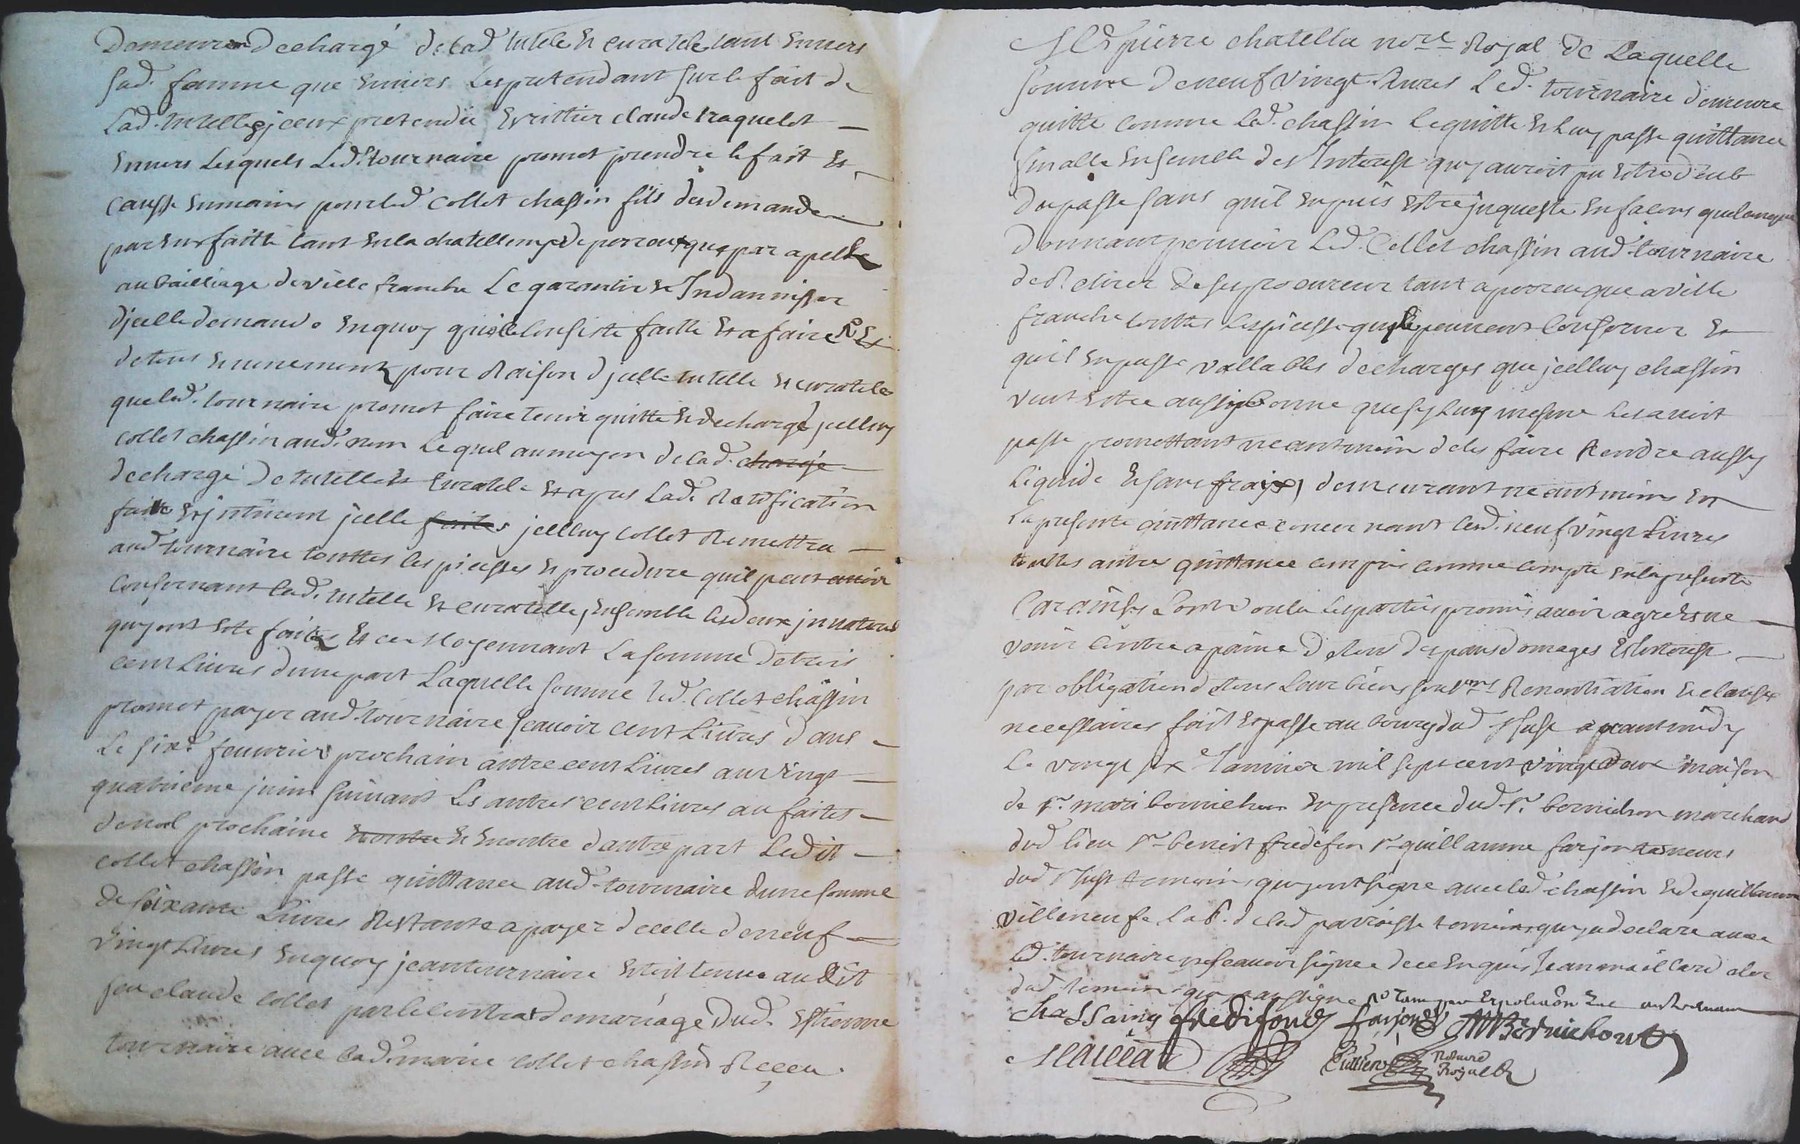 Demeurer dechargé de lad. tutele et curatele tant envers
sad. famme que envers les pretendant sur le fait de
lad. tutelle jceux pretendu herittier claude traquelet
envers lesquels led. tournaire promet prendre le fait et
causse en mains pour led. collet chassin fils du demande
par eux faitte tant en la chatellenye de perreux que par apelle
au bailliage de ville franche le garantir et Indannisser
djcelle demande en quoy quelle consiste faitte et a faire et
de tous evenements pour Raison djcelle tutelle et curatele
que led. tournaire promet faire tenir quitte et decharge jcelluy
collet chassin aud. nom lequel au moyen de lad. charge
decharge de tutelle et curatele et apres lad. Ratification
faitte et jcelle faitte jcelluy collet Remettra
aud. tournaire touttes les piesses et procedure quil peut avoir
consernant lad. tutelle et curatelle, ensemble les deux jnvataires
quy ont esté faites et ce Moyennant la somme de trois
cent livres dune part laquelle somme led. collet chassin
promet payer aud. tournaire scavoir cent livres dans
le six. feuvrier prochain autre cent livres au vingt
quatrieme juin suivant les autres cent livres au faites
de noel prochaine et enoutre dautre part ledit
collet chassin passe quittance aud. tournaire dune somme
de soixante livres Restante a payer de celle de neuf
vingt livres en quoy jean tournaire estoit tenu audit
feu claude collet par le contrat de mariage dud. estienne
tournaire avec lad. marie collet chassin Receu
pierre chatellu no.re Royal de laquelle
somme de neuf vingt livres led. tournaire demeure
quitte comme led. chassin le quitte et luy passe quittance
finalle ensemble des Interest quy auroit pu estre deub
du passe sans quil en puis estre jnqueste en facons quelconque
donnant pouvoir led. Collet chassin aud. tournaire
de Retirer de procureur tant a perreux que a ville
franche touttes les piesse quy le peuvent consserner et
quil en passe vallables decharges que jcelluy chassin
veut estre aussy bonne que sy luy mesme les avoit
passe promettant neantmoin de les faire Rendre aussy
liquide et sans fraix, demeurant neantmoins en
la presente quittance concernant lesd. neuf vingt livres
touttes autres quittance compris comme compte en la presente
Car ainsy lont voulu les parties promis avoir agree et ne
venir contre a paine de tous despans domages et Interest
par obligation de tous leur biens Renontiation et clauses
necessaires fait et passe au bourg dud. St just avant midy
le vingt six.e Janvier mil sept cent vingt deux maison
de s.r mari bernichon en presence dud. s.r bernichon marchand
dud. lieu s.r benoist fredefon s.r guillaume farjon tasneurs
dud. St Just temoins quy ont signe avec led. chassin et de guillaume
villeneufve lab. de lad. parroisse temoins quy a declare avec
led. tournaire ne scavoir signer de ce enquis Jean maillard clerc
dud. temoin quy a aussy signe
chassaing fredifond farjond MBernichont
Maillard Notaire
Royall